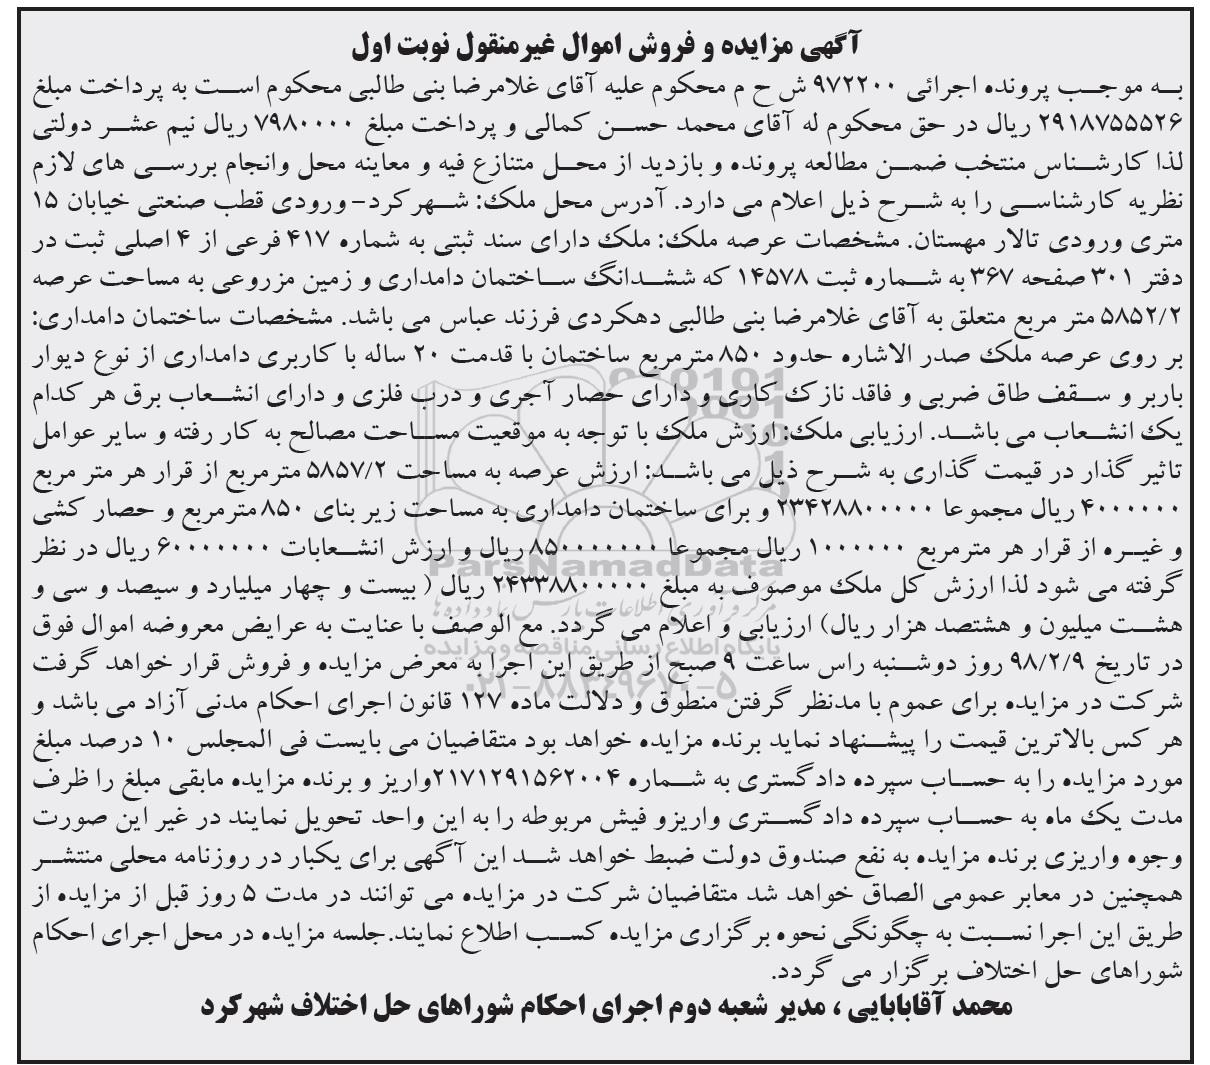 آگهی مزایده و فروش اموال غیرمنقول نوبت اول
به موجب پرونده اجرائی ۹۷۲۲۰۰ ش ح م محکوم علیه آقای غلامرضا بنی طالبی محکوم است به پرداخت مبلغ
۲۹۱۸۷۵۵۵۲۶ ریال در حق محکوم له آقای محمد حسن کمالی و پرداخت مبلغ ۷۹۸۰۰۰۰ ریال نیم عشر دولتی
لذا کارشناس منتخب ضمن مطالعه پرونده و بازدید از محل متنازع فیه و معاینه محل وانجام بررسی های لازم
نظریه کارشناسی را به شرح ذیل اعلام می دارد. آدرس محل ملک: شهرکرد- ورودی قطب صنعتی خیابان ۱۵
متری ورودی تالار مهستان. مشخصات عرصه ملک: ملک دارای سند ثبتی به شماره ۴۱۷ فرعی از ۴ اصلی ثبت در
دفتر ۳۰۱ صفحه ۳۶۷ به شماره ثبت ۱۴۵۷۸ که ششدانگ ساختمان دامداری و زمین مزروعی به مساحت عرصه
۵۸۵۲/۲ متر مربع متعلق به آقای غلامرضا بنی طالبی دهکردی فرزند عباس می باشد. مشخصات ساختمان دامداری:
بر روی عرصه ملک صدر الاشاره حدود ۸۵۰ مترمربع ساختمان با قدمت ۲۰ ساله با کاربری دامداری از نوع دیوار
باربر و سقف طاق ضربی و فاقد نازک کاری و دارای حصار آجری و درب فلزی و دارای انشعاب برق هر کدام
یک انشعاب می باشد. ارزیابی ملک: ارزش ملک با توجه به موقعیت مساحت مصالح به کار رفته و سایر عوامل
تاثیر گذار در قیمت گذاری به شرح ذیل می باشد: ارزش عرصه به مساحت ۵۸۵۷/۲ مترمربع از قرار هر متر مربع
۴۰۰۰۰۰۰ ریال مجموعا ۲۳۴۲۸۸۰۰۰۰۰ و برای ساختمان دامداری به مساحت زیر بنای ۸۵۰ مترمربع و حصار کشی
و غیره از قرار هر مترمربع ۱۰۰۰۰۰۰ ریال مجموعا ۸۵۰۰۰۰۰۰۰ ریال و ارزش انشعابات ۶۰۰۰۰۰۰۰ ریال در نظر
گرفته می شود لذا ارزش کل ملک موصوف به مبلغ ۲۴۳۳۸۸۰۰۰۰۰ ریال ( بیست و چهار میلیارد و سیصد و سی و
هشت میلیون و هشتصد هزار ریال) ارزیابی و اعلام می گردد. مع الوصف با عنایت به عرایض معروضه اموال فوق
در تاریخ ۹۸/۲/۹ روز دوشنبه راس ساعت ۹ صبح از طریق این اجرا به معرض مزایده و فروش قرار خواهد گرفت
شرکت در مزایده برای عموم با مدنظر گرفتن منطوق و دلالت ماده ۱۲۷ قانون اجرای احکام مدنی آزاد می باشد و
هر کس بالاترین قیمت را پیشنهاد نماید برنده مزایده خواهد بود متقاضیان می بایست فی المجلس ۱۰ درصد مبلغ
مورد مزایده را به حساب سپرده دادگستری به شماره ۲۱۷۱۲۹۱۵۶۲۰۰۴واریز و برنده مزایده مابقی مبلغ را ظرف
مدت یک ماه به حساب سپرده دادگستری واریزو فیش مربوطه را به این واحد تحویل نمایند در غیر این صورت
وجوه واریزی برنده مزایده به نفع صندوق دولت ضبط خواهد شد این آگهی برای یکبار در روزنامه محلی منتشر
همچنین در معابر عمومی الصاق خواهد شد متقاضیان شرکت در مزایده می توانند در مدت ۵ روز قبل از مزایده از
طریق این اجرا نسبت به چگونگی نحوه برگزاری مزایده کسب اطلاع نمایند.جلسه مزایده در محل اجرای احکام
شوراهای حل اختلاف برگزار می گردد.
محمد آقابابایی ، مدیر شعبه دوم اجرای احکام شوراهای حل اختلاف شهرکرد
ParsNamadData
پایگاه اطلاع رسانی مناقصه و مزایده
۰۲۱-۸۸۳۴۹۶۷۰-۵